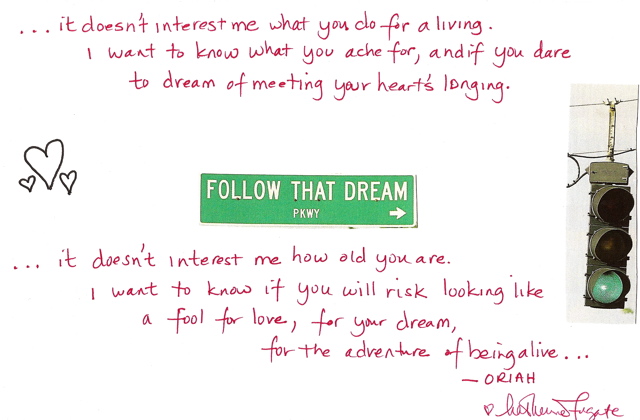 ... it doesn't interest me what you do for a living.
I want to know what you ache for, and if you dare
to dream of meeting your heart's longing.
FOLLOW THAT DREAM
PKWY
... it doesn't interest me how old you are.
I want to know if you will risk looking like
a fool for love, for your dream,
for the adventure of being alive...
- ORIAH